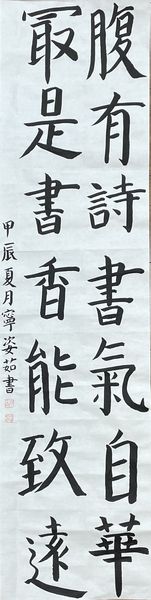 腹有詩書氣自華
冣是書香能致遠
甲辰夏月寧姿茹書